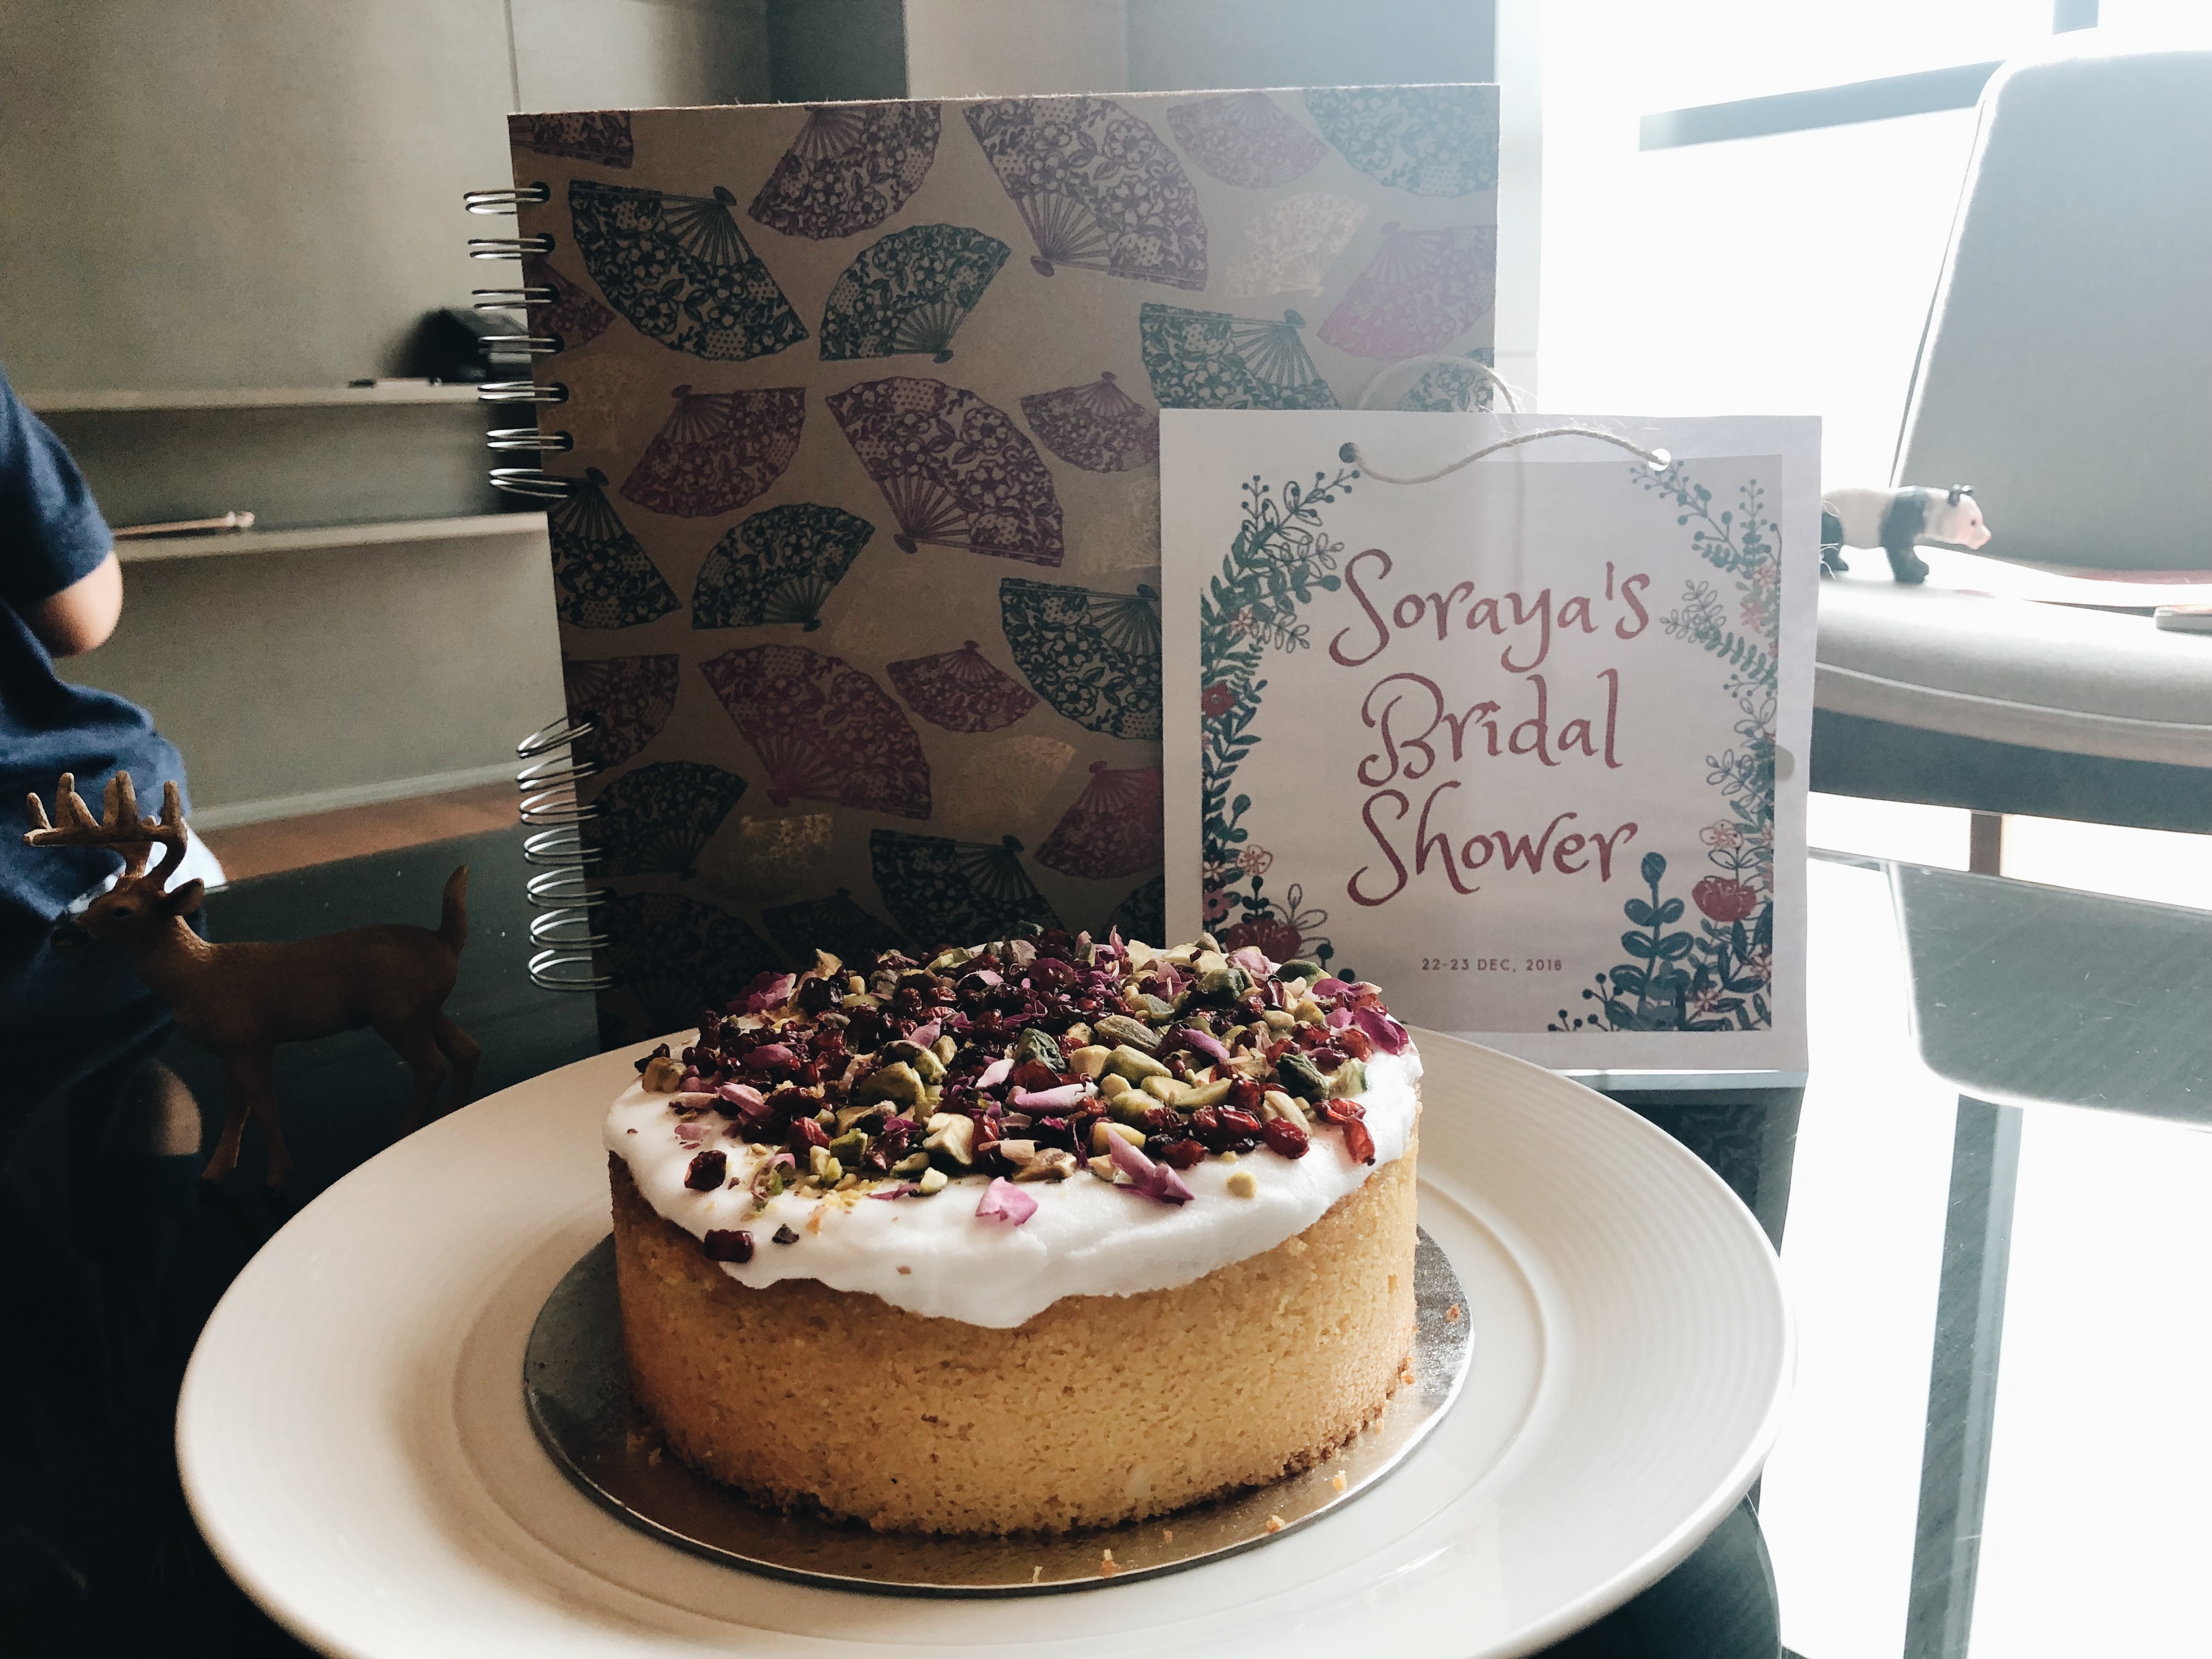 Soraya's
Bridal
Shower
22-23 DEC, 2018